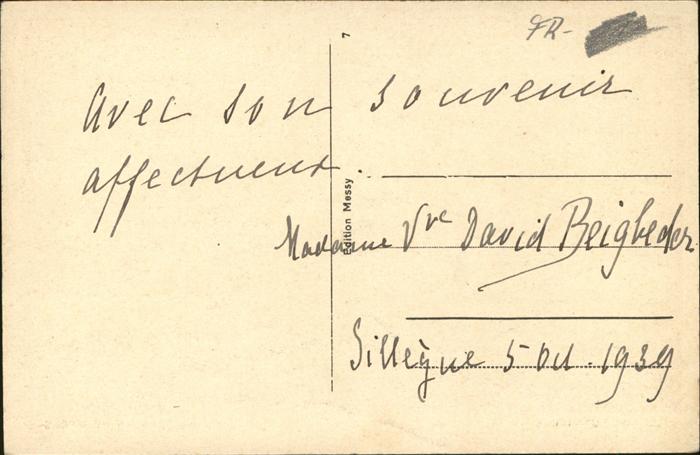 FR-
7
Avec son souvenir
affectueux.
Edition Messy
Madame Vve David Beigbeder
Sillègue 5 Oct. 1939